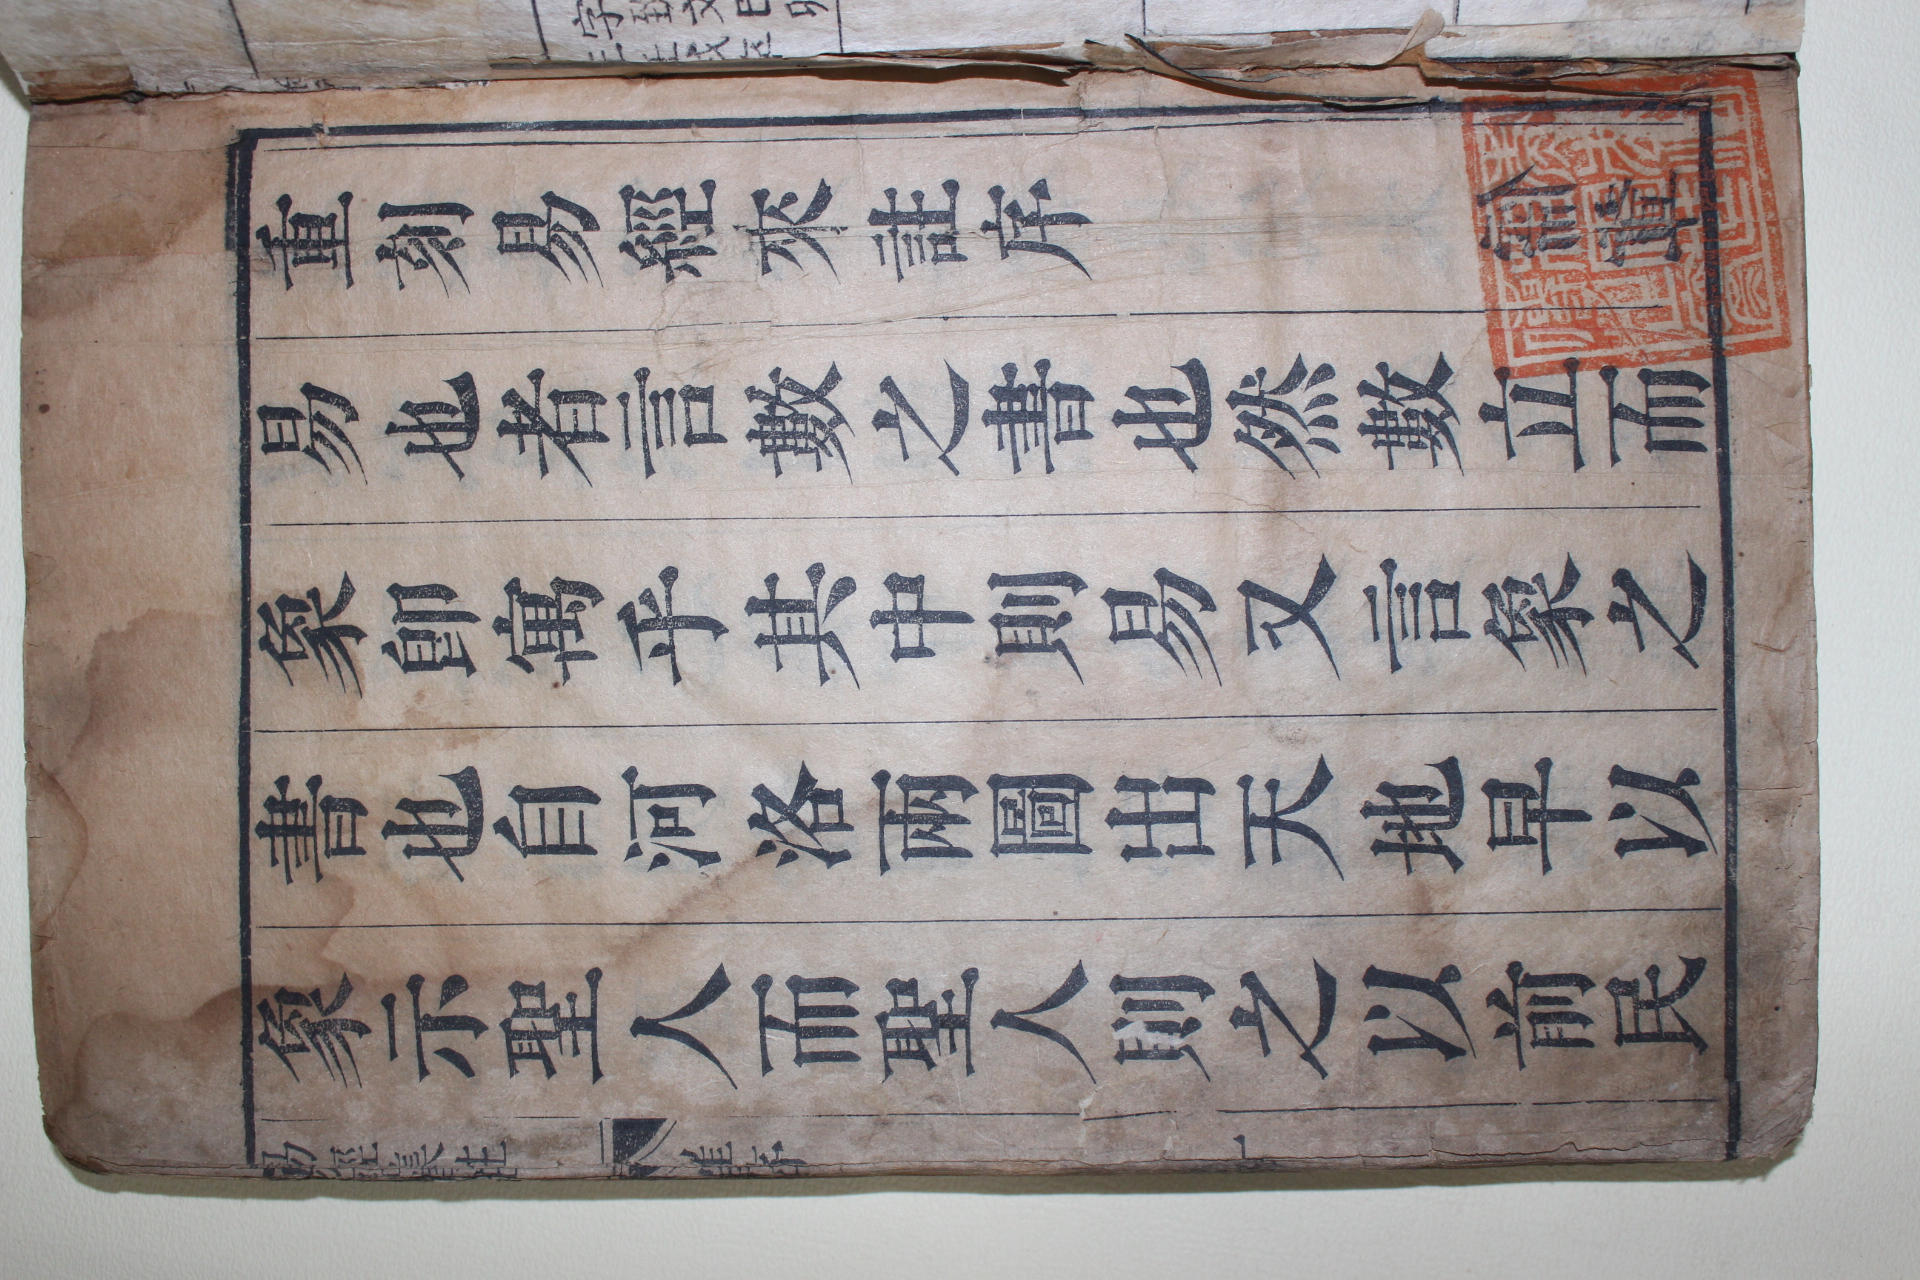 重刻易經來註序
易也者言數之書也然數立而
象卽寓乎其中則易又言象之
書也自河洛兩圖出天地早以
象示聖人而聖人則之以前民
易經集註
崔序
一